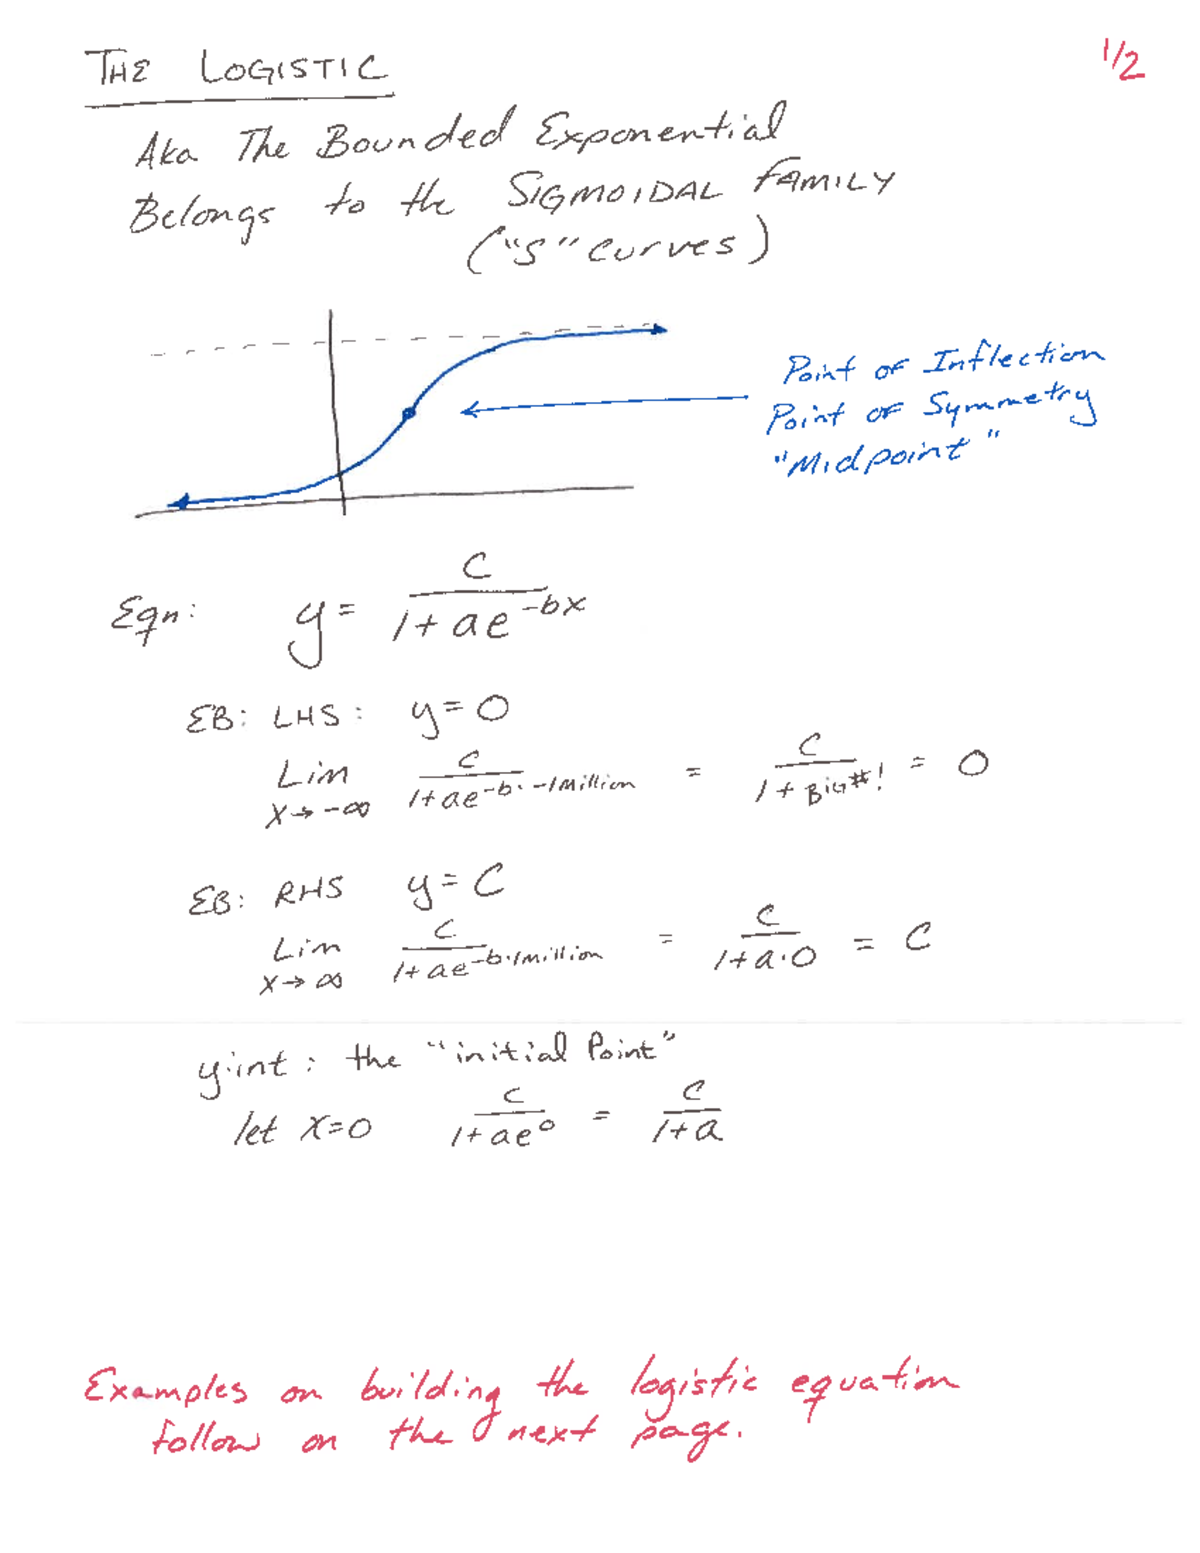 THE LOGISTIC
1/2
Aka The Bounded Exponential
Belongs to the SIGMOIDAL FAMILY
("S" curves)
Point of Inflection
Point of Symmetry
"Midpoint"
Eqn: y = C / (1 + ae^(-bx))
EB: LHS: y = 0
Lim x→-∞ C / (1 + ae^(-b·-1million)) = C / (1 + BiG#!) = 0
EB: RHS y = C
Lim x→∞ C / (1 + ae^(-b·1million)) = C / (1 + a·0) = C
y·int: the "initial Point"
let x=0 C / (1 + ae^0) = C / (1 + a)
Examples on building the logistic equation
follow on the next page.